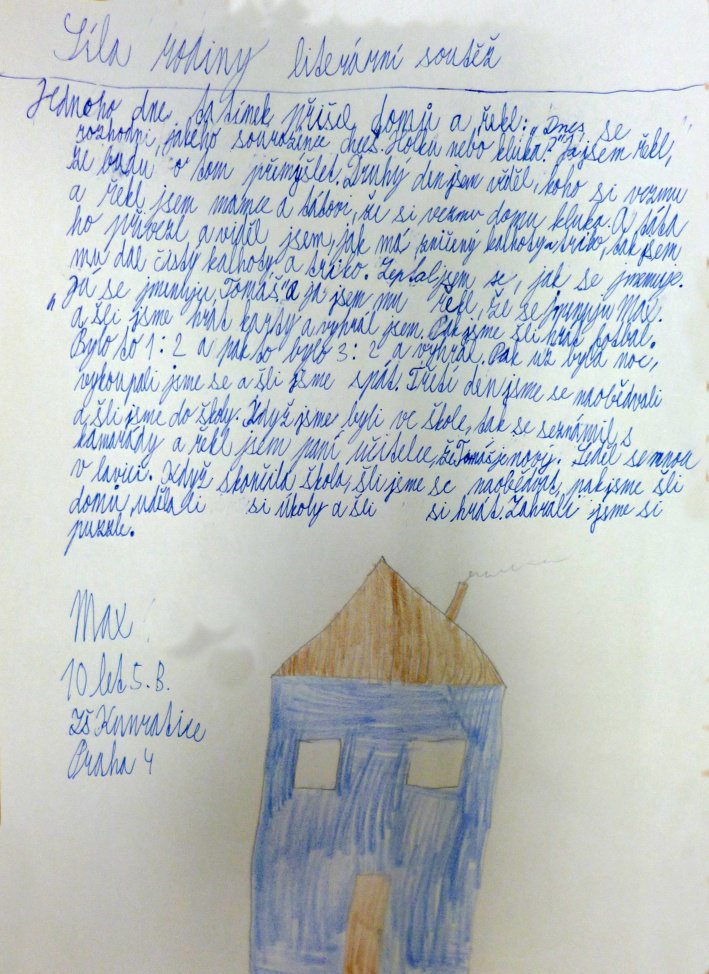 Síla rodiny literární soutěž
Jednoho dne tatínek přišel domů a řekl: „Dnes se
rozhodni, jakého sourozence chceš. Holku nebo kluka?" Já jsem řekl,
že budu o tom přemýšlet. Druhý den jsem věděl, koho si vezmu
a řekl jsem mamce a tátovi, že si vezmu domu kluka. A táta
ho přivezl a viděl jsem, jak má zničený kalhoty a triko, tak jsem
mu dal čistý kalhoty a triko. Zeptal jsem se, jak se jmenuje.
„Já se jmenuju Tomáš" a já jsem mu řekl, že se jmenuju Max.
a šli jsme hrát karty a vyhrál jsem. Pak jsme šli hrát fotbal.
Bylo to 1:2 a pak to bylo 3:2 a vyhrál. Pak už byla noc,
vykoupali jsme se a šli jsme spát. Třetí den jsme se naobědvali
a šli jsme do školy. Když jsme byli ve škole, tak se seznámil s
kamarády a řekl jsem paní učitelce, že Tomáš je nový. Seděl se mnou
v lavici. Když skončila škola, šli jsme se naobědvat, pak jsme šli
domů, udělali si úkoly a šli si hrát. Zahráli jsme si
puzzle.
Max
10 let 5.B.
ZŠ Kunratice
Praha 4